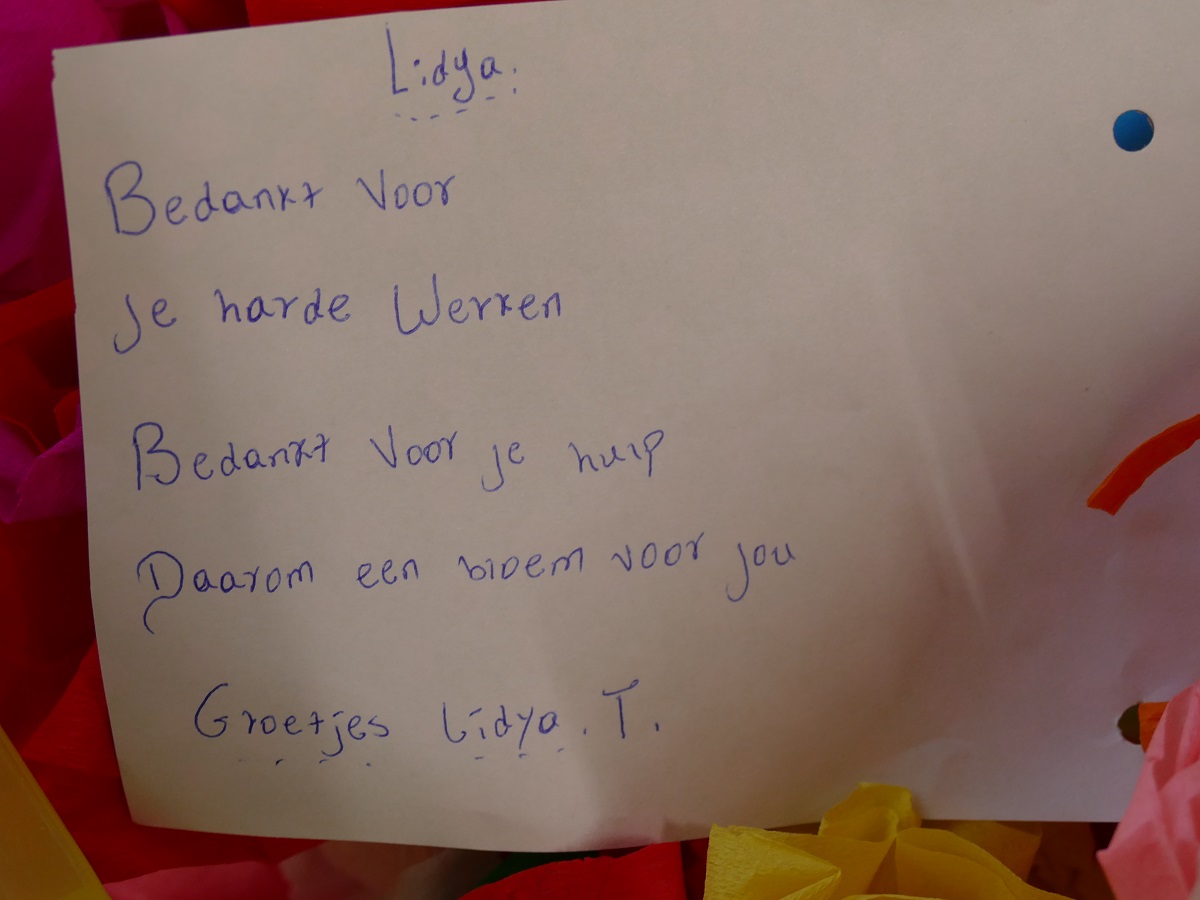 Lidya.
Bedankt voor
je harde werken
Bedankt voor je hulp
Daarom een bloem voor jou
Groetjes Lidya. T.